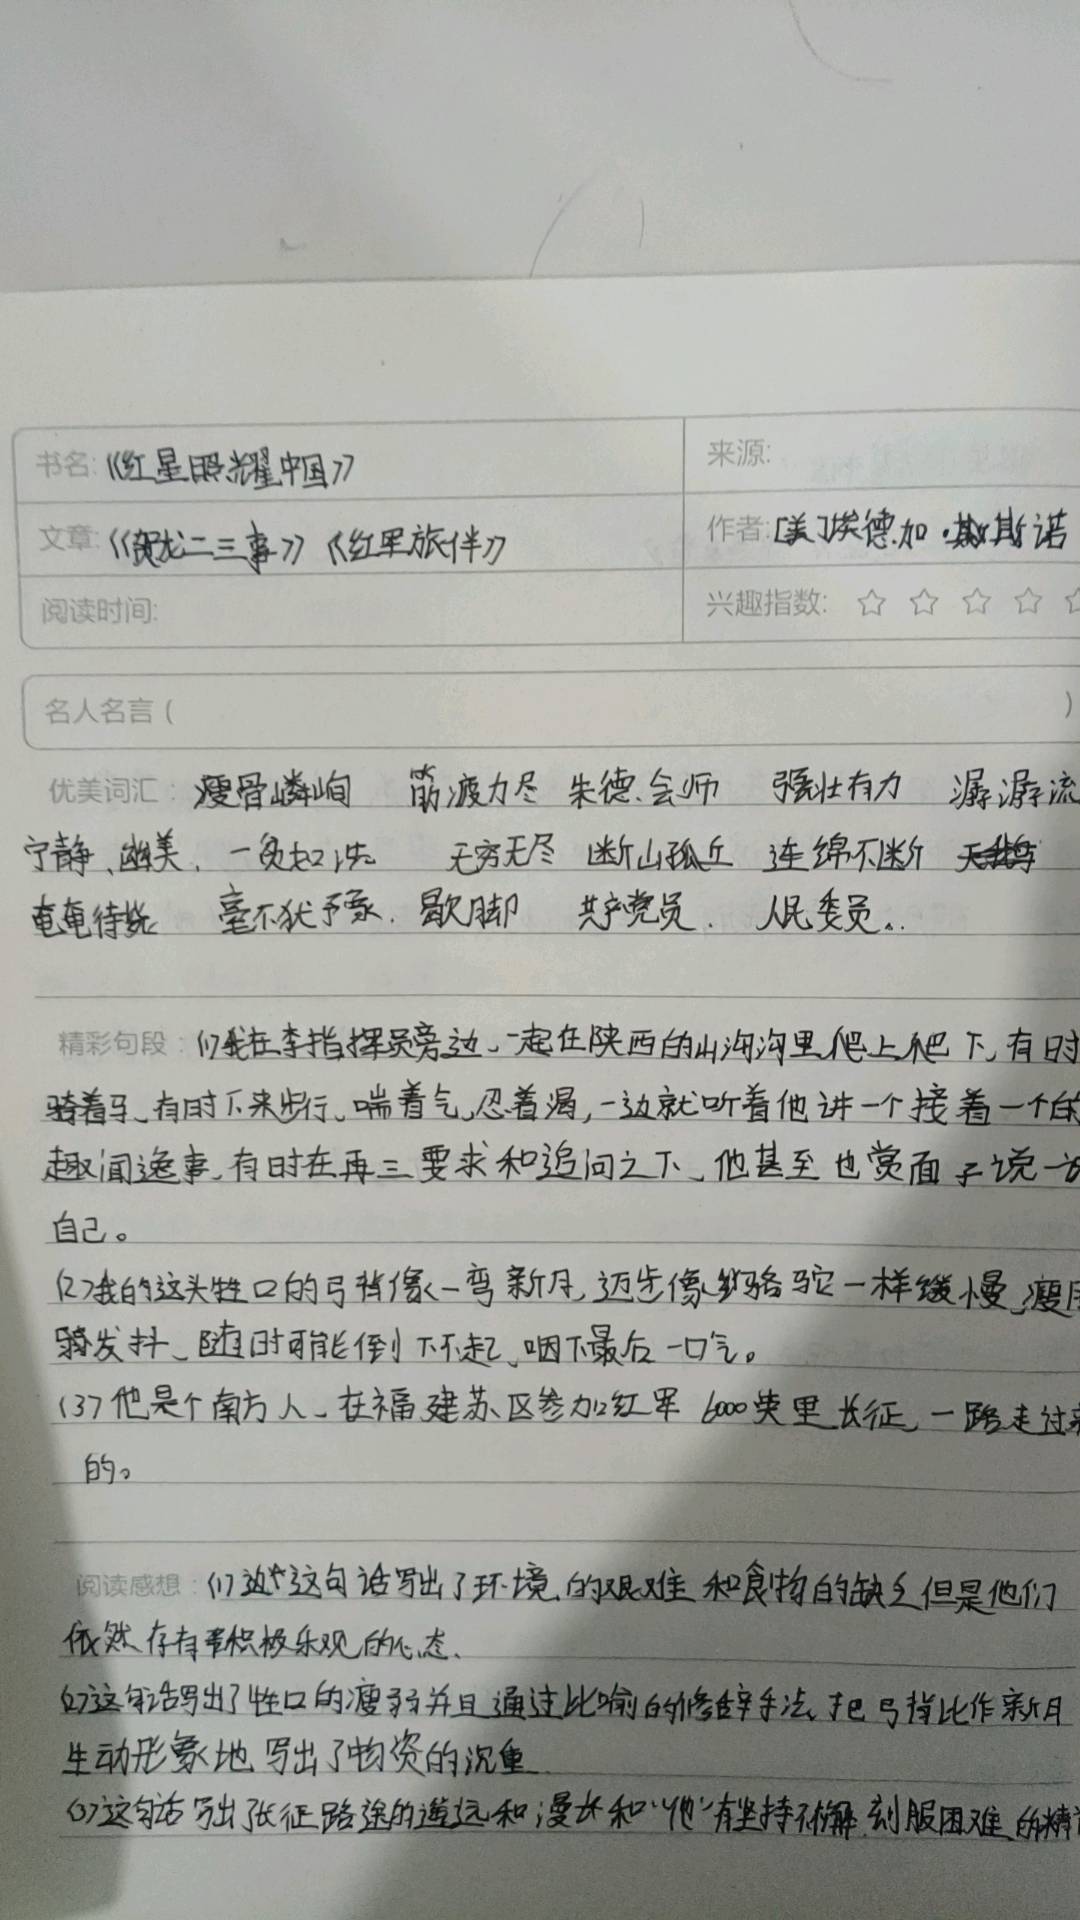 书名:《红星照耀中国》
来源:
文章:《贺龙二三事》《红军旅伴》
作者:[美]埃德加·斯诺
阅读时间:
兴趣指数: ☆ ☆ ☆ ☆ ☆
名人名言( )
优美词汇: 瘦骨嶙峋 筋疲力尽 朱德、会师 强壮有力 潺潺流
宁静、幽美、一负起 无穷无尽 断山孤丘 连绵不断
奄奄待毙 毫不犹予豕、歇脚 共产党员、人民委员。
精彩句段: (1)我在李指挥员旁边、一起在陕西的山沟沟里爬上爬下,有时
骑着马、有时下来步行、喘着气、忍着渴,一边就听着他讲一个接着一个的
趣闻逸事,有时在再三要求和追问之下、他甚至也赏面子说一说
自己。
(2)我的这头牲口的弓背像一弯新月,迈步像骆驼一样缓慢、瘦
发抖、随时可能倒下不起、咽下最后一口气。
(3)他是个南方人、在福建苏区参加红军 6000英里长征,一路走过来
的。
阅读感想: (1)这句话写出了环境的艰难和食物的缺乏但是他们
依然存有积极乐观的心态、
(2)这句话写出了牲口的瘦弱并且通过比喻的修辞手法、把弓背比作新月
生动形象地写出了物资的沉重
(3)这句话写出长征路途的遥远和漫长和“他”有坚持不懈、刻服困难的精